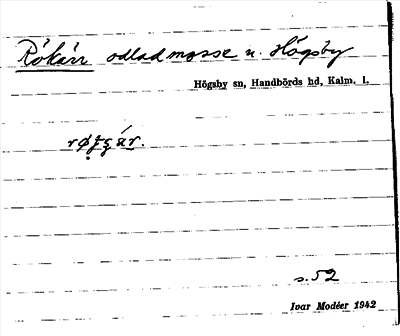 Rökärr odlad mosse u. Högsby
Högsby sn, Handbörds hd, Kalm. l.
s. 52
Ivar Modéer 1942